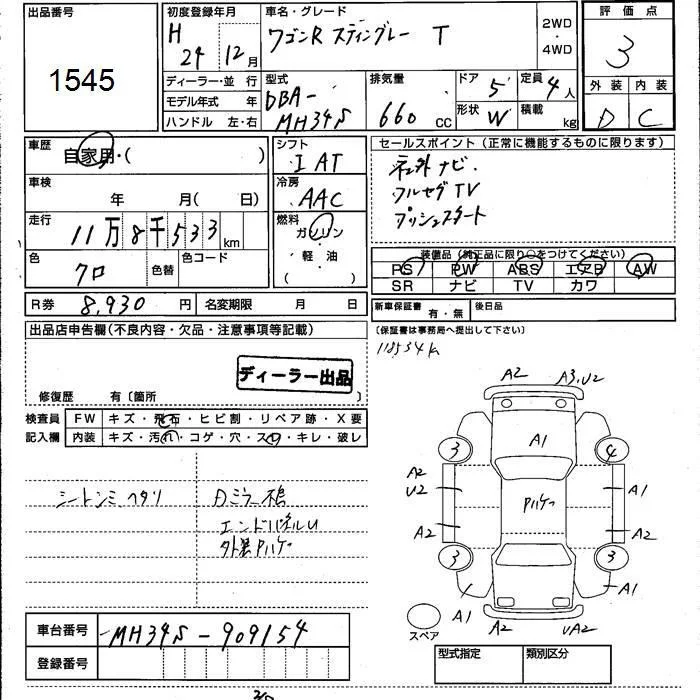 出品番号
1545
初度登録年月
H 24 12月
車名・グレード
ワゴンR スティングレー T
2WD
・
4WD
評価点
3
外装 内装
D C
ディーラー・並行
モデル年式 年
ハンドル 左・右
型式
DBA-
MH34S
排気量
660 cc
ドア 5
定員 4人
形状 W
積載 kg
車歴
自家用・( )
車検
年 月( 日)
走行
11万8千533km
色
クロ
色替
色コード
シフト
I AT
冷房
AAC
燃料
ガソリン
・
軽油
( )
セールスポイント(正常に機能するものに限ります)
社外ナビ
フルセグTV
プッシュスタート
装備品(純正品に限り○をつけてください)
PS PW ABS エアB AW
SR ナビ TV カワ
R券 8,930円
名変期限 月 日
新車保証書 有・無
後日品
(保証書は事務局へ提出して下さい)
118534k
出品店申告欄(不良内容・欠品・注意事項等記載)
ディーラー出品
修復歴 有〔箇所 〕
検査員
記入欄
FW キズ・飛石・ヒビ割・リペア跡・X要
内装 キズ・汚れ・コゲ・穴・スレ・キレ・破レ
シートシミヘタリ
エンドパネルU
外装Pハゲ
A2 A3,U2
A1
3 4
A2
U2
Pハゲ
A1
A2 A2
3 3
A1 A1
A2 UA2
スペア
車台番号 MH34S-909154
登録番号
型式指定 類別区分